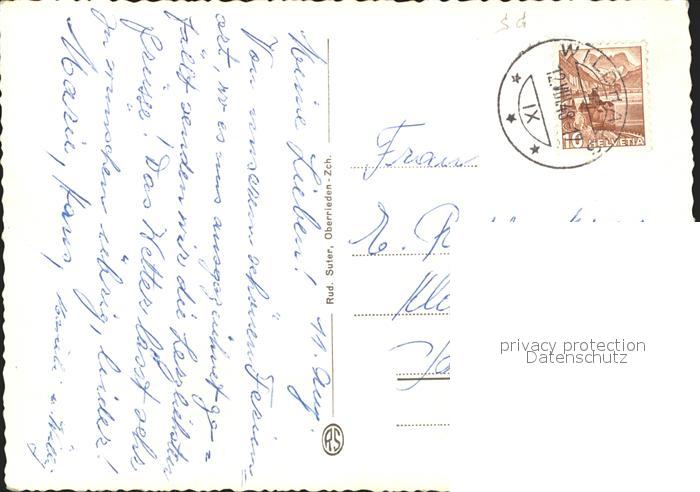 Meine Lieben! 11. Aug.
Von unserem schönen Ferien-
ort, wo es uns ausgezeichnet ge=
fällt senden wir die herzlichsten
Grüsse! Das Wetter lässt sehr
zu wünschen übrig, leider!
Marie, Hans,
Rud. Suter, Oberrieden-Zch.
RS
SG
WILDHAUS
IX
10 HELVETIA
Frau
E.
privacy protection
Datenschutz